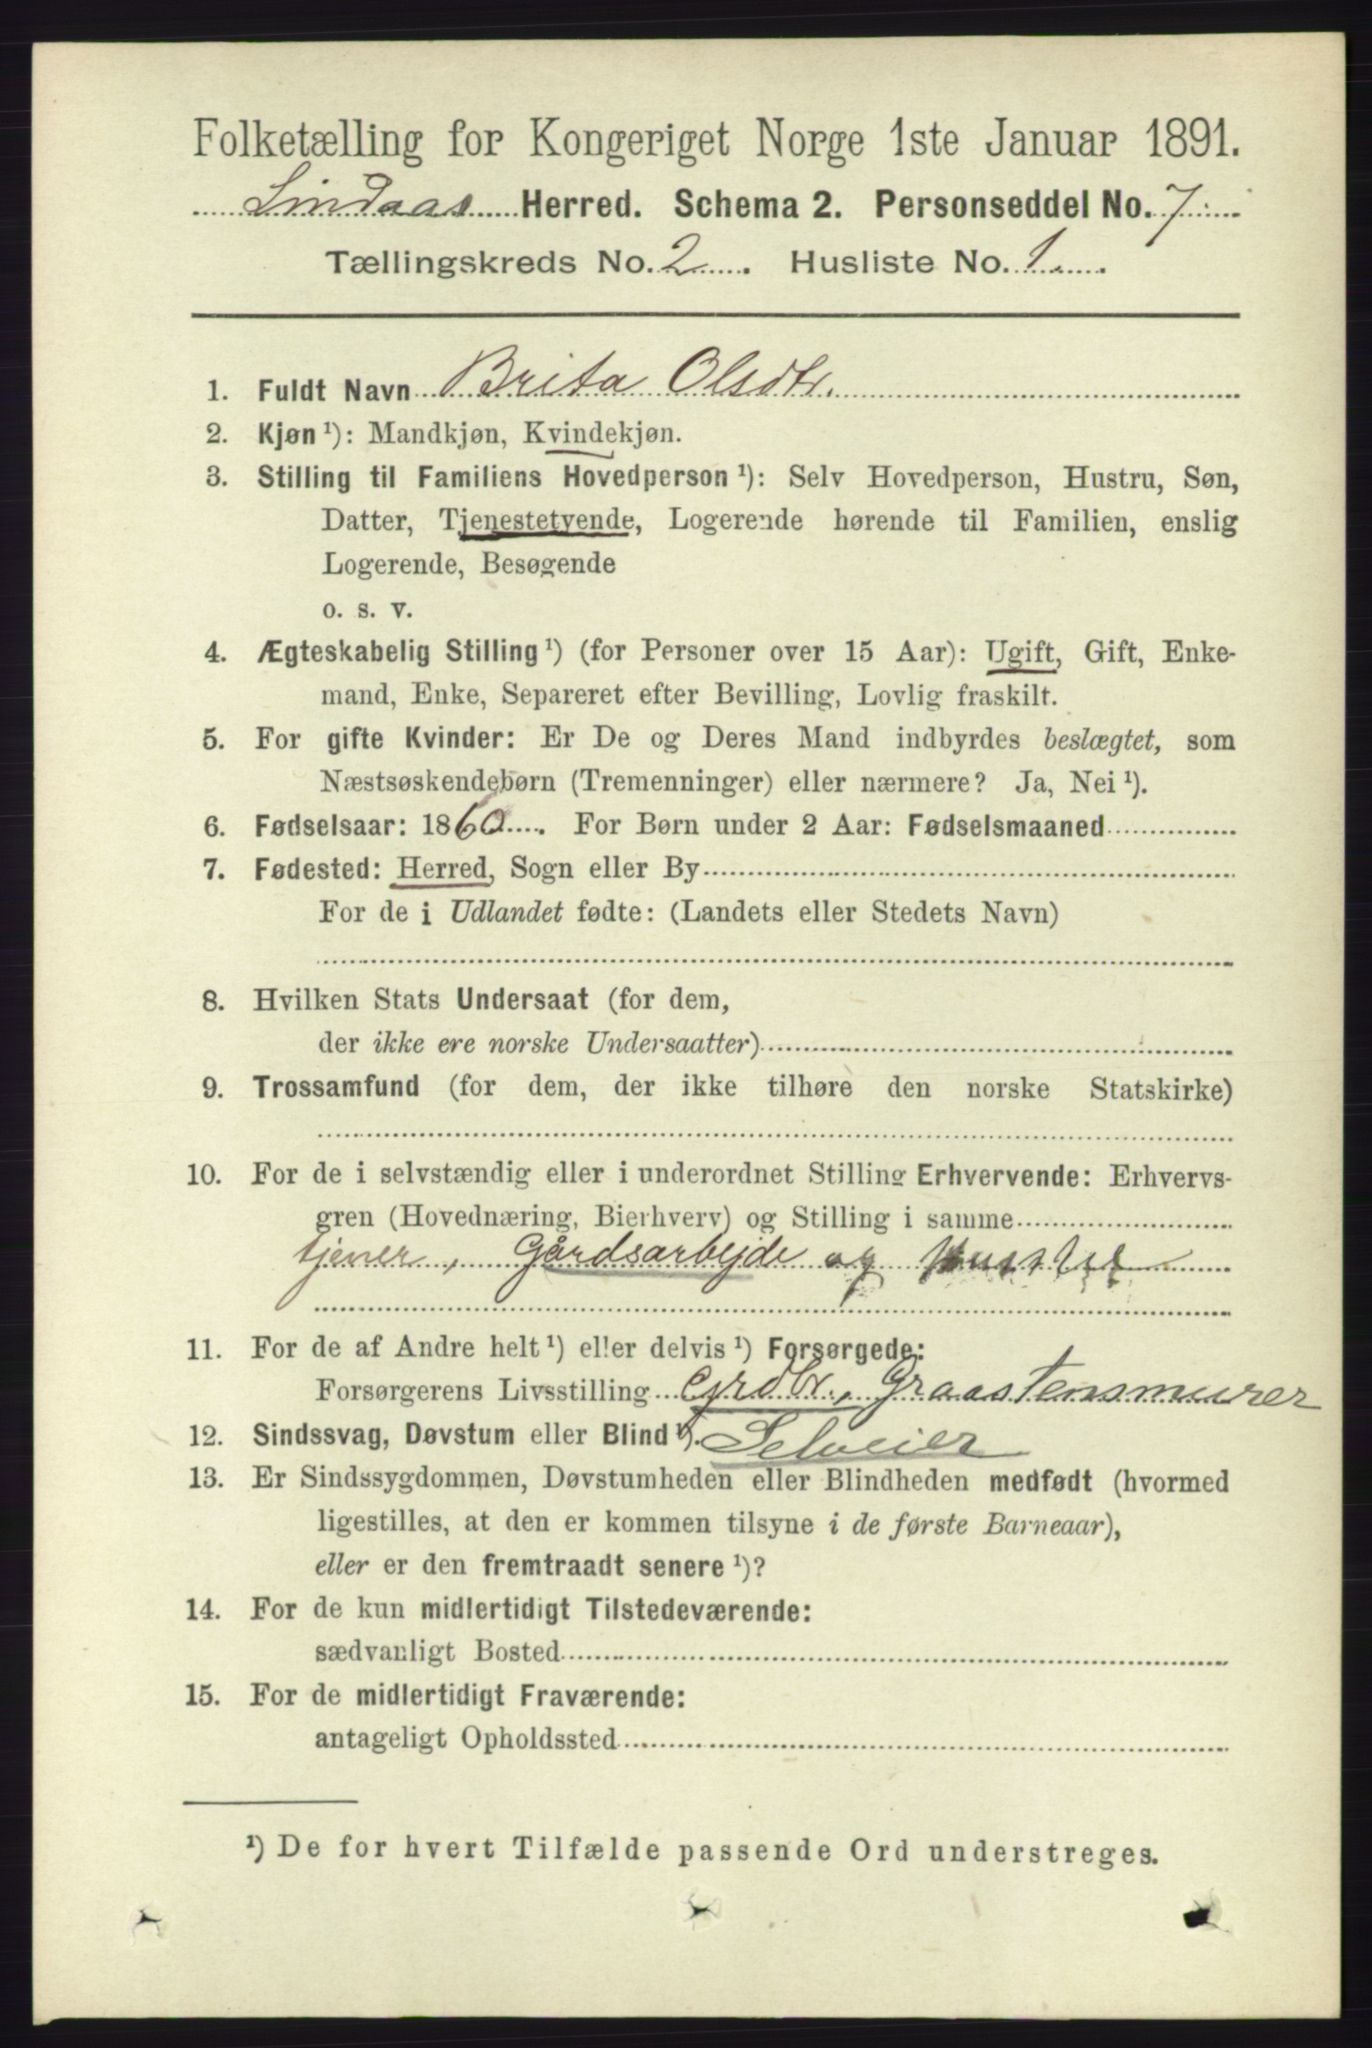 Folketælling for Kongeriget Norge 1ste Januar 1891.
Lindaas Herred. Schema 2. Personseddel No. 7
Tællingskreds No. 2. Husliste No. 1.
1. Fuldt Navn Brita Olsdtr.
2. Kjøn¹): Mandkjøn, Kvindekjøn.
3. Stilling til Familiens Hovedperson¹): Selv Hovedperson, Hustru, Søn,
Datter, Tjenestetyende, Logerende hørende til Familien, enslig
Logerende, Besøgende
o. s. v.
4. Ægteskabelig Stilling¹) (for Personer over 15 Aar): Ugift, Gift, Enke-
mand, Enke, Separeret efter Bevilling, Lovlig fraskilt.
5. For gifte Kvinder: Er De og Deres Mand indbyrdes beslægtet, som
Næstsøskendebørn (Tremenninger) eller nærmere? Ja, Nei¹).
6. Fødselsaar: 1860. For Børn under 2 Aar: Fødselsmaaned
7. Fødested: Herred, Sogn eller By
For de i Udlandet fødte: (Landets eller Stedets Navn)
8. Hvilken Stats Undersaat (for dem,
der ikke ere norske Undersaatter)
9. Trossamfund (for dem, der ikke tilhøre den norske Statskirke)
10. For de i selvstændig eller i underordnet Stilling Erhvervende: Erhvervs-
gren (Hovednæring, Bierhverv) og Stilling i samme
tjener, Gårdsarbejde og
11. For de af Andre helt¹) eller delvis¹) Forsørgede:
Forsørgerens Livsstilling Grdbr., Graastensmurer
12. Sindssvag, Døvstum eller Blind¹). Selveier
13. Er Sindssygdommen, Døvstumheden eller Blindheden medfødt (hvormed
ligestilles, at den er kommen tilsyne i de første Barneaar),
eller er den fremtraadt senere¹)?
14. For de kun midlertidigt Tilstedeværende:
sædvanligt Bosted
15. For de midlertidigt Fraværende:
antageligt Opholdssted
¹) De for hvert Tilfælde passende Ord understreges.